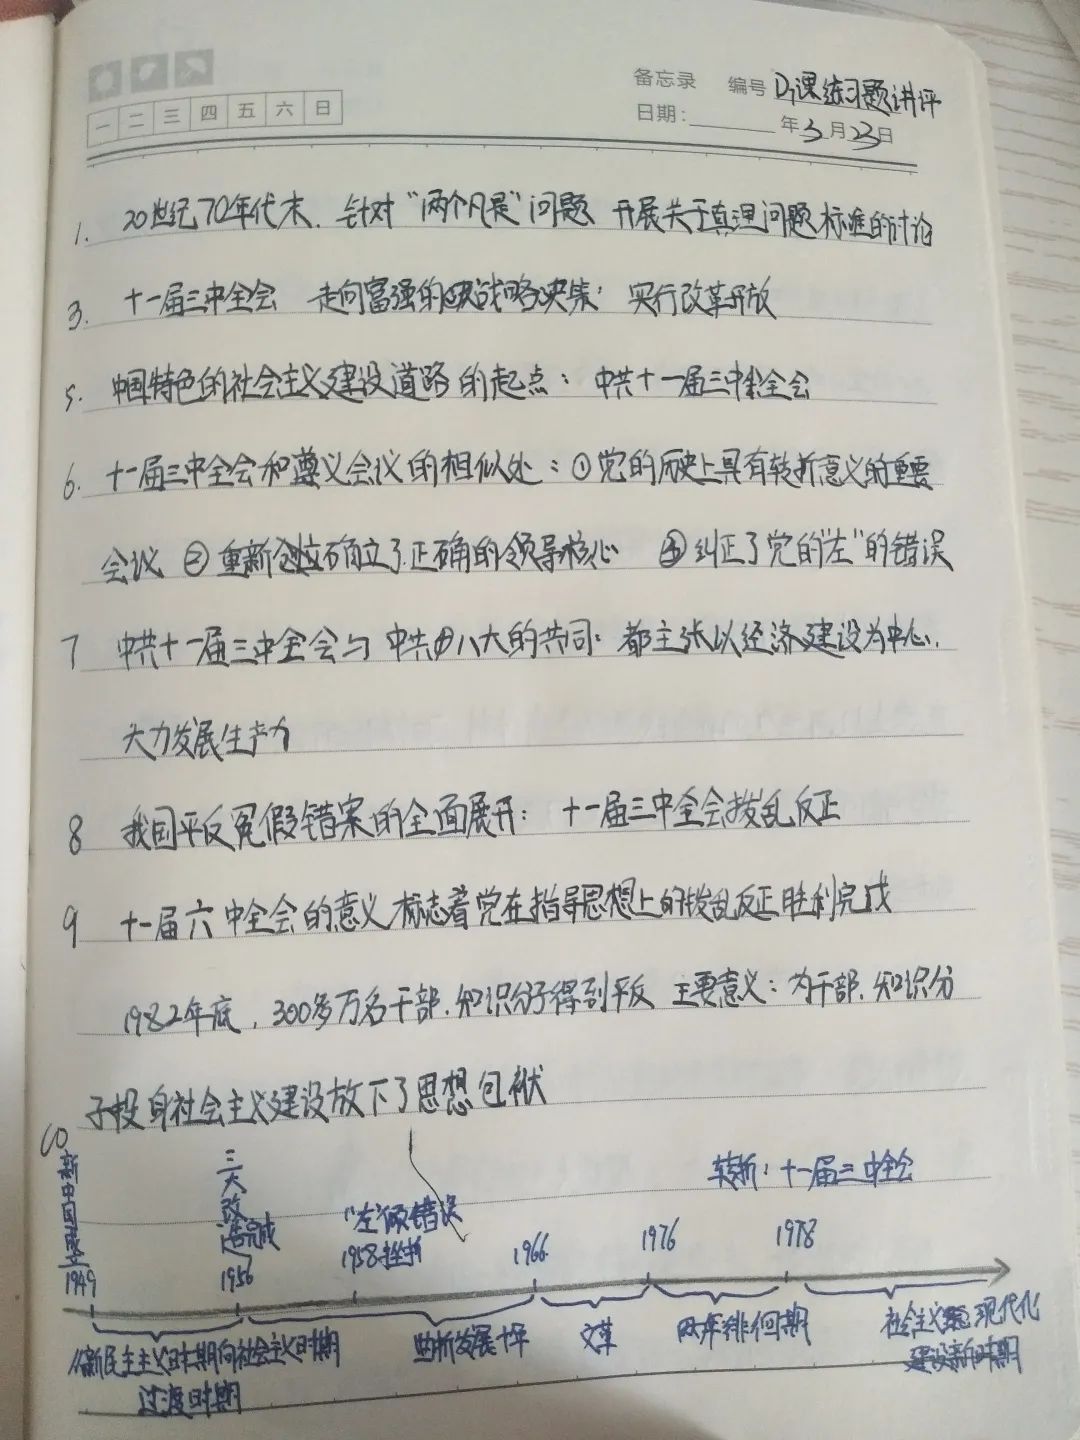 备忘录 编号 D7课练习题讲评
一 二 三 四 五 六 日
日期: 年3月23日
1. 20世纪70年代末、针对“两个凡是”问题 开展关于真理问题标准的讨论
3. 十一届三中全会 走向富强的战略决策: 实行改革开放
5. 中国特色的社会主义建设道路的起点: 中共十一届三中全会
6. 十一届三中全会和遵义会议的相似处: ①党的历史上具有转折意义的重要
会议 ②重新确立了正确的领导核心 ③纠正了党的“左”的错误
7 中共十一届三中全会与中共八大的共同: 都主张以经济建设为中心.
大力发展生产力
8 我国平反冤假错案的全面展开: 十一届三中全会拨乱反正
9 十一届六中全会的意义 标志着党在指导思想上的拨乱反正胜利完成
1982年底, 300多万名干部.知识分子得到平反 主要意义: 为干部.知识分
子投身社会主义建设放下了思想包袱
10
新中国成立 三大改造完成 “左”倾错误 转折: 十一届三中全会
1949 1956 1958挫折 1966 1976 1978
从新民主主义时期向社会主义时期 发展十年 文革 两年徘徊期 社会主义现代化
过渡时期 建设新时期